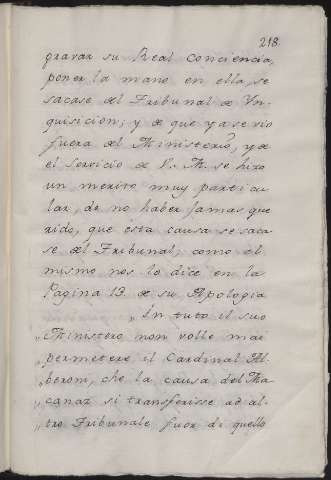 218.
gravar su Real Conciencia,
poner la mano en ella, se
sacase del Tribunal de Yn-
quisicion; y de que ya se vio
fuera del Ministerio, y de
el Servicio de V. M. se hizo
un merito muy particu
lar, de no haber jamas que
rido, que esta causa se saca
se del Tribunal; como el
mismo nos lo dice en la
Pagina 13 de su Apologia
„ In tuto il suo
„ Ministero non volle mai
„ permetere il Cardinal Al-
„ beroni, che la causa del Ma
„ canaz si transferisse ad al-
„ tro Tribunale fuor di quello